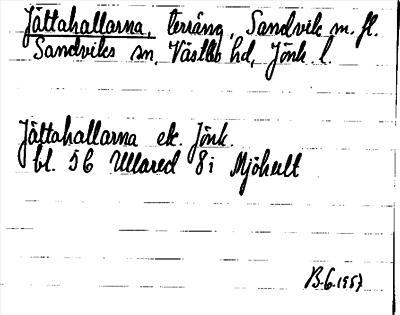 Jättahallarna, terräng, Sandvik m. fl.
Sandviks sn, Västbo hd, Jönk. l.
Jättahallarna ek. Jönk.
bl. 5C Ullared 8i Mjöhult
B.G. 1957